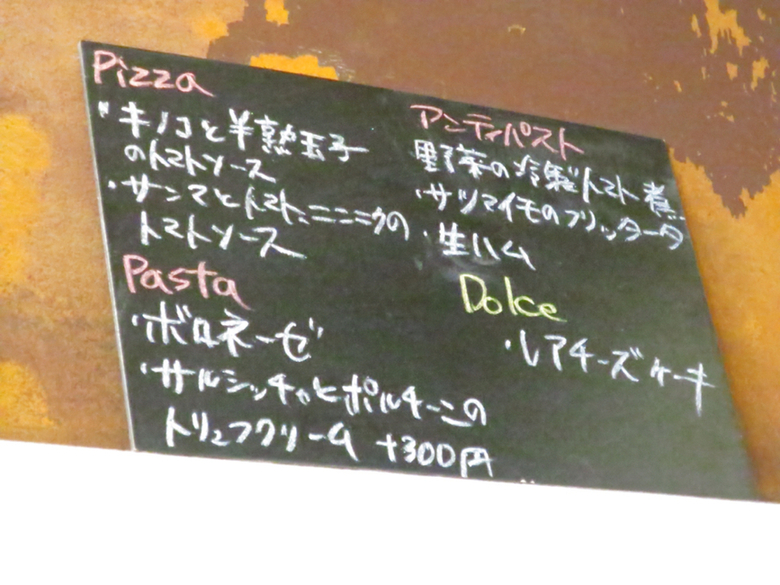 Pizza
・キノコと半熟玉子
のトマトソース
・サンマとトマト、ニンニクの
トマトソース
Pasta
・ボロネーゼ
・サルシッチャとポルチーニの
トリュフクリーム +300円
アンティパスト
野菜の冷製トマト煮
・サツマイモのフリッタータ
・生ハム
Dolce
・レアチーズケーキ